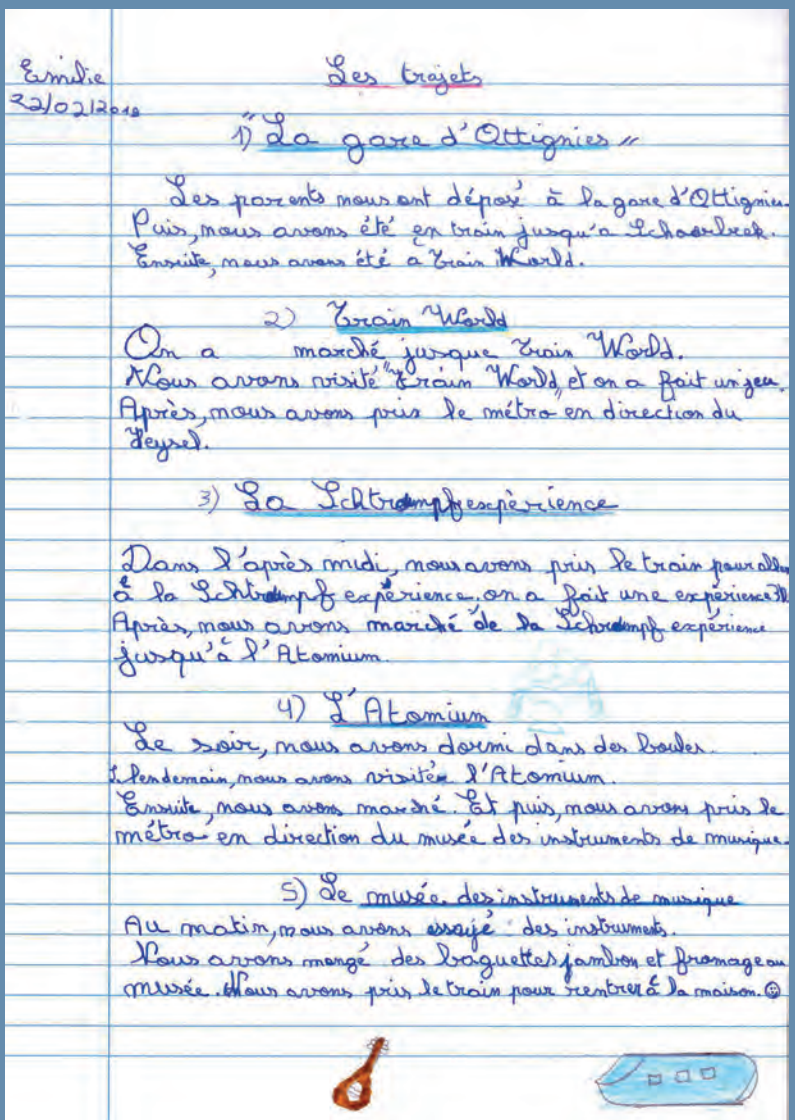 Emilie
22/02/2018
Les trajets
1) "La gare d'Ottignies"
Les parents nous ont déposé à la gare d'Ottignies.
Puis, nous avons été en train jusqu'a Schaerbeek.
Ensuite, nous avons été a Train World.
2) Train World
On a marché jusque Train World.
Nous avons visité "Train World" et on a fait un jeu.
Après, nous avons pris le métro en direction du
Heysel.
3) La Schtroumpf expèrience
Dans l'après midi, nous avons pris le train pour aller
à la Schtroumpf expérience. on a fait une expérience 3D
Après, nous avons marché de la Schroumpf expérience
jusqu'à l'Atomium.
4) L'Atomium
Le soir, nous avons dormi dans des boules.
L lendemain, nous avons visitée l'Atomium.
Ensuite, nous avons marché. Et puis, nous avons pris le
métro en direction du musée des instruments de musique.
5) Le musée des instruments de musique
Au matin, nous avons essayé des instruments.
Nous avons mangé des baguettes jambon et fromage au
musée. Nous avons pris le train pour rentrer à la maison.